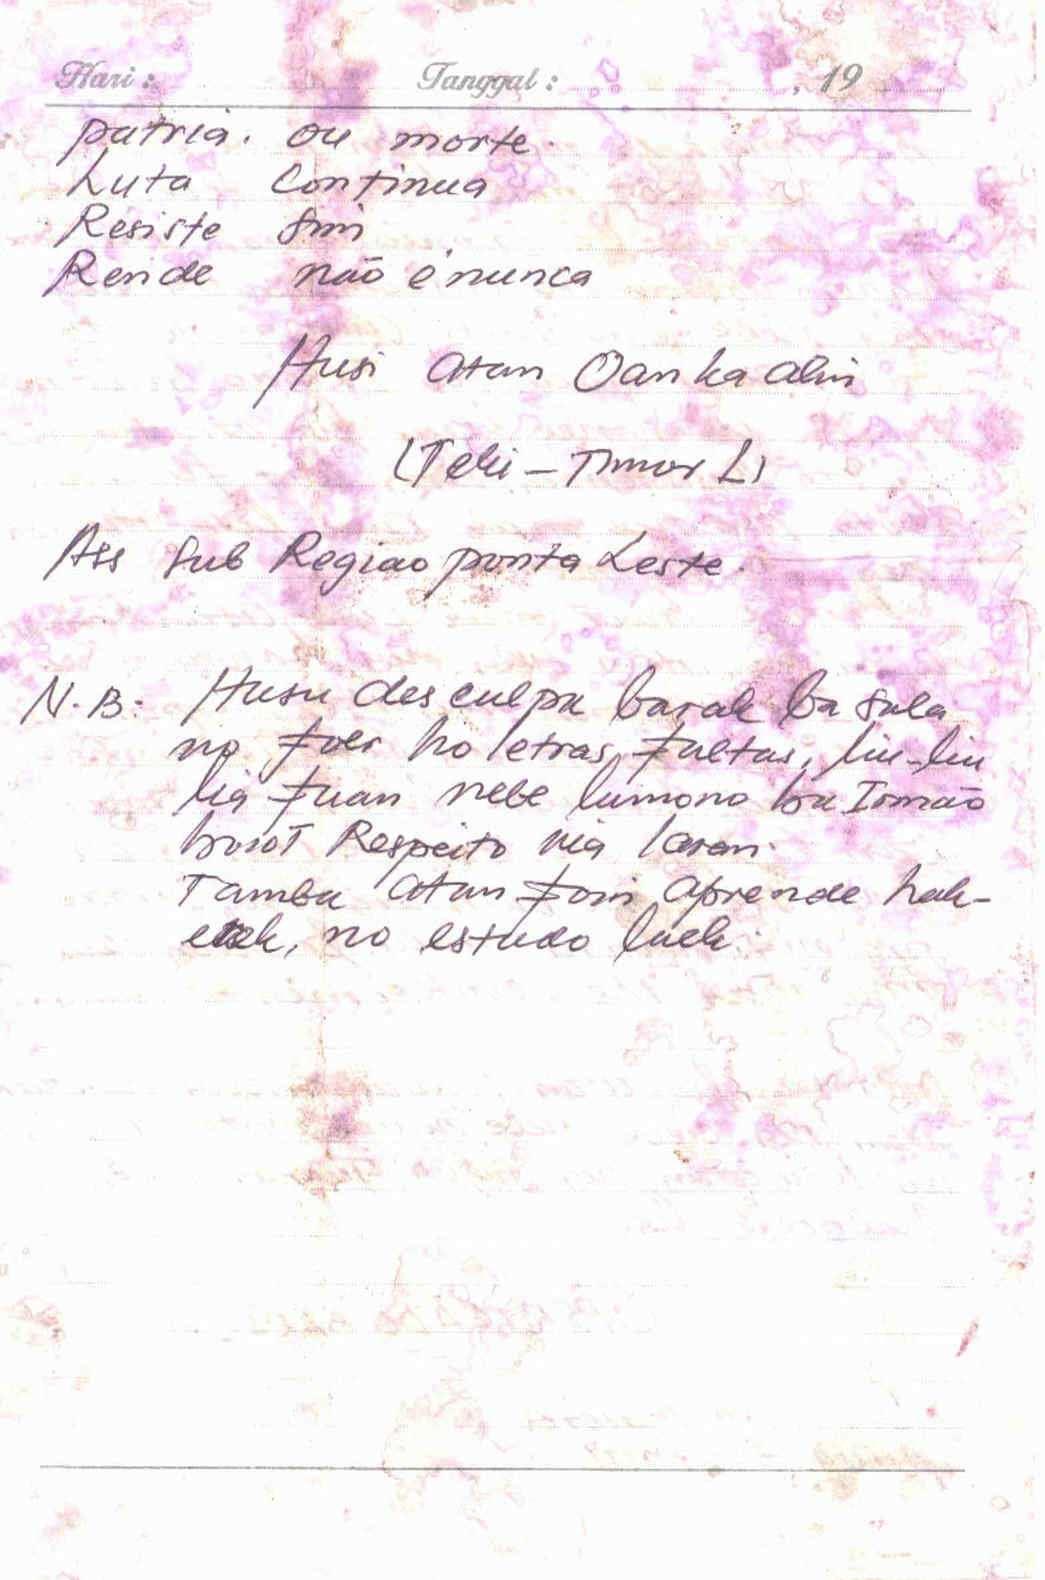 Hari : Tanggal : , 19
patria. ou morte.
Luta Continua
Resiste sim
Rende não é nunca
Husi Atan Oan ka alin
(Teki - Timor L)
Ass Sub Regiao ponta Leste.
N.B: Husu desculpa barak ba sala
no foer ho letras faltas, liu-liu
lia fuan nebe lamono ba Irmão
boot Respeito nia laran.
Tamba Atan foin aprende hak-
erek, no estudo laek.